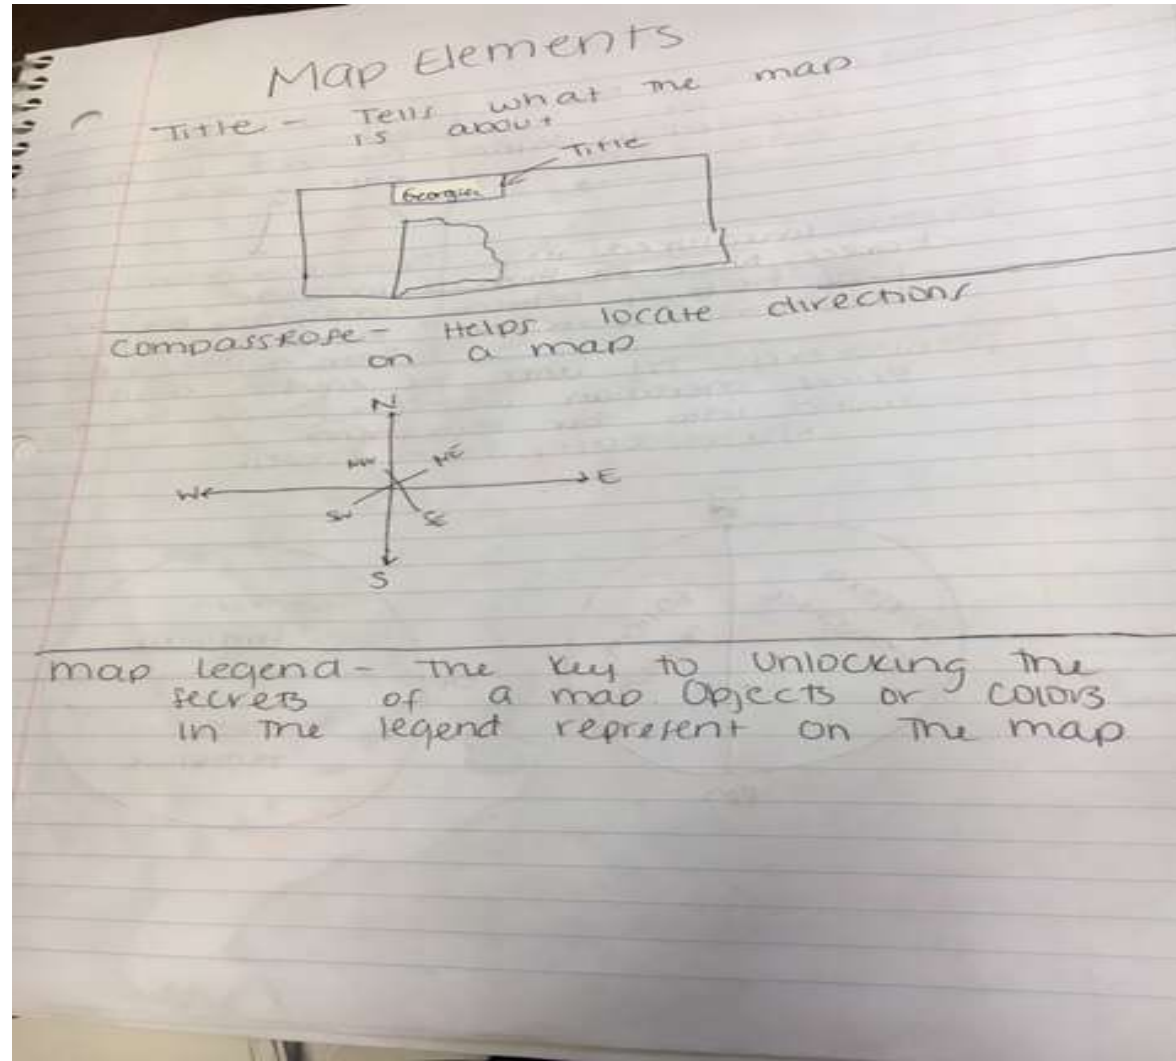 Map Elements
Title - Tells what the map
is about
Title
Georgia
Compass Rose - Helps locate directions
on a map
N
NW NE
W E
SW SE
S
map legend - The key to unlocking the
secrets of a map Objects or colors
in the legend represent on the map